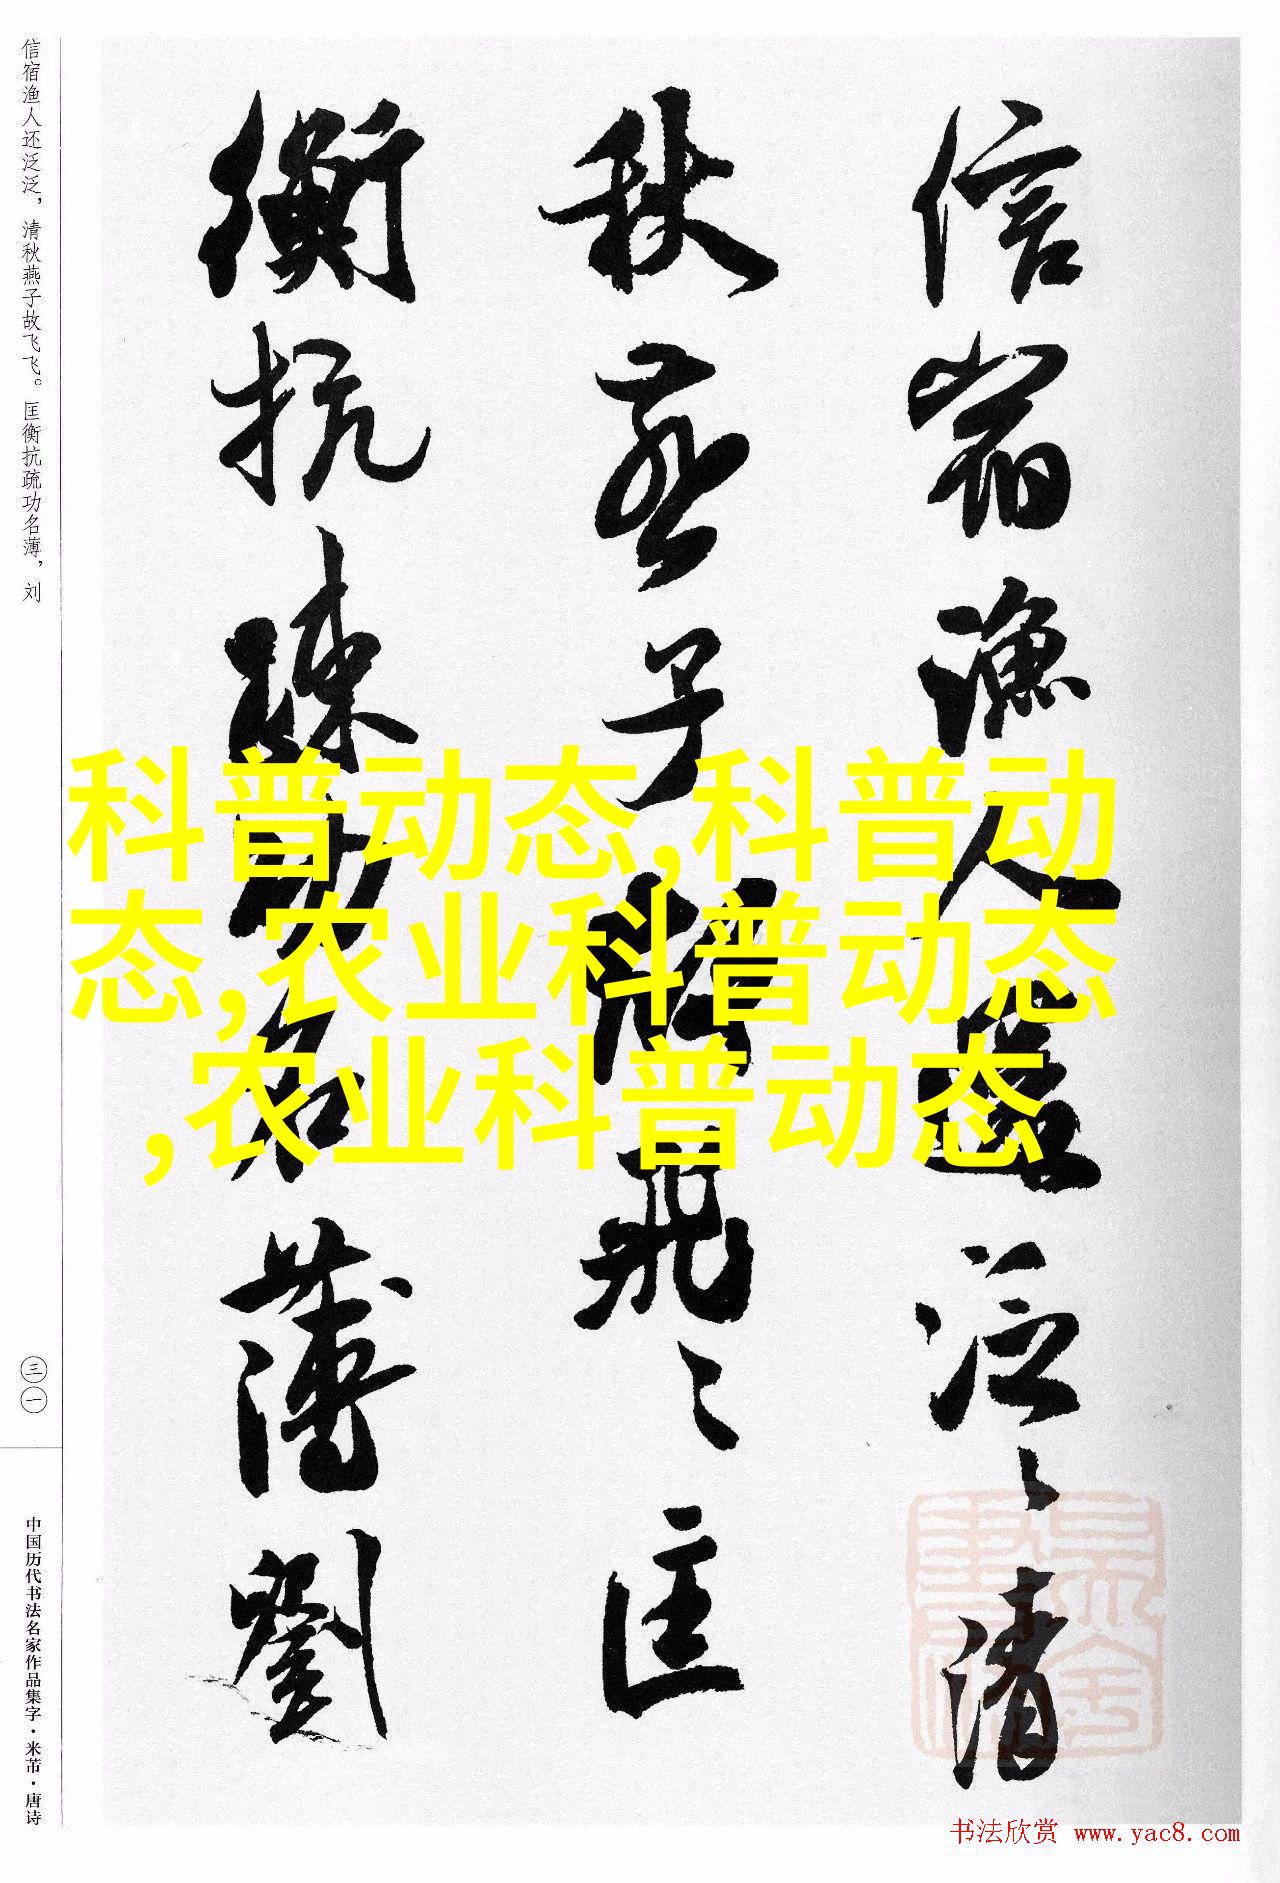 信宿渔人还泛泛，清秋燕子故飞飞。匡衡抗疏功名薄，刘
三一
中国历代书法名家作品集字·米芾·唐诗
信宿漁人還泛〻清
秋燕子故飛〻匡
衡抗疏功名薄劉
科普动态,科普动
态,农业科普动态
,农业科普动态
书法欣赏 www.yac8.com